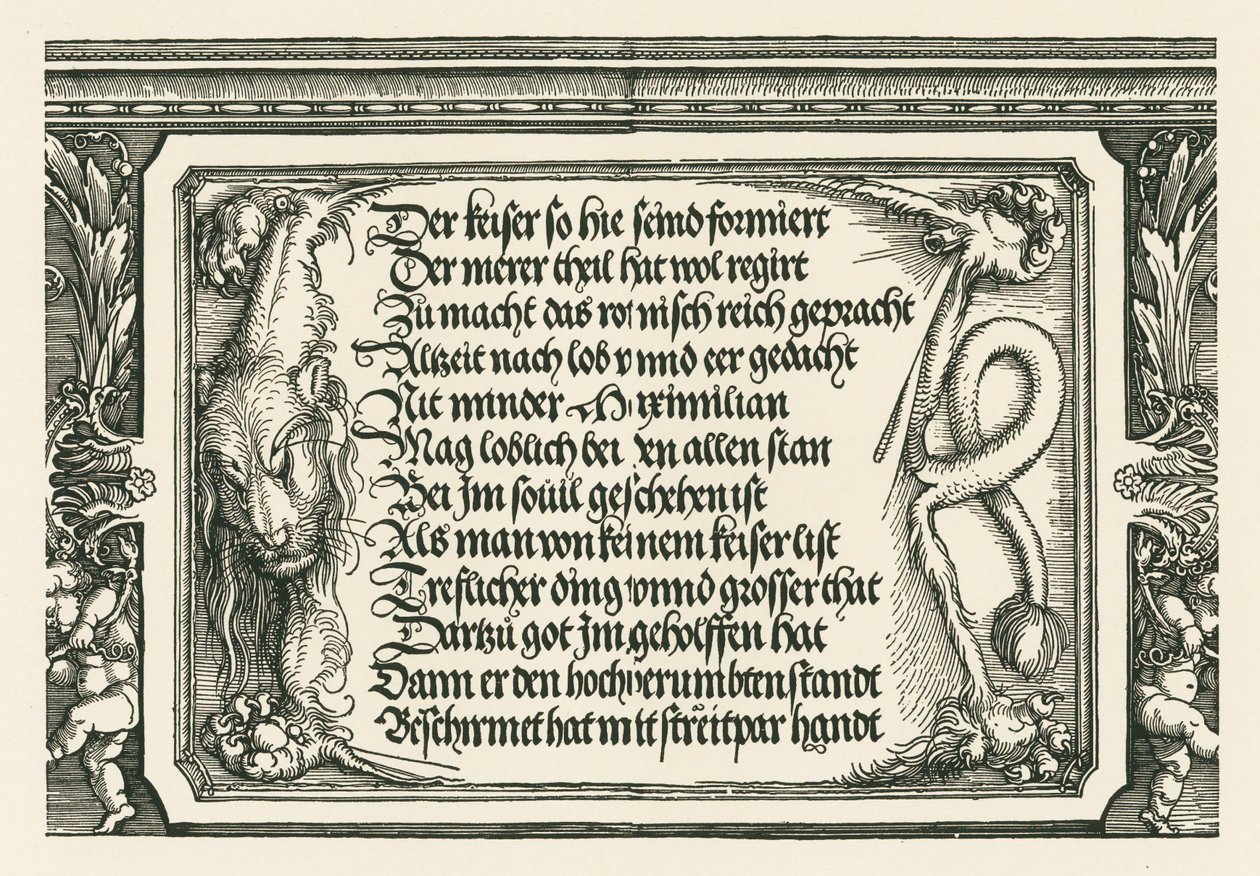 Der keiser so hie seind formiert
Der merer theil hat wol regirt
Zu macht das romisch reich gepracht
Altzeit nach lob vnnd eer gedacht
Nit minder Maximilian
Mag loblich bei den allen stan
Bei Im souil geschehen ist
Als man von keinem keiser list
Treflicher ding vnnd grosser that
Dartzů got Im geholffen hat
Dann er den hochverumbten standt
Beschirmet hat mitt streitpar handt